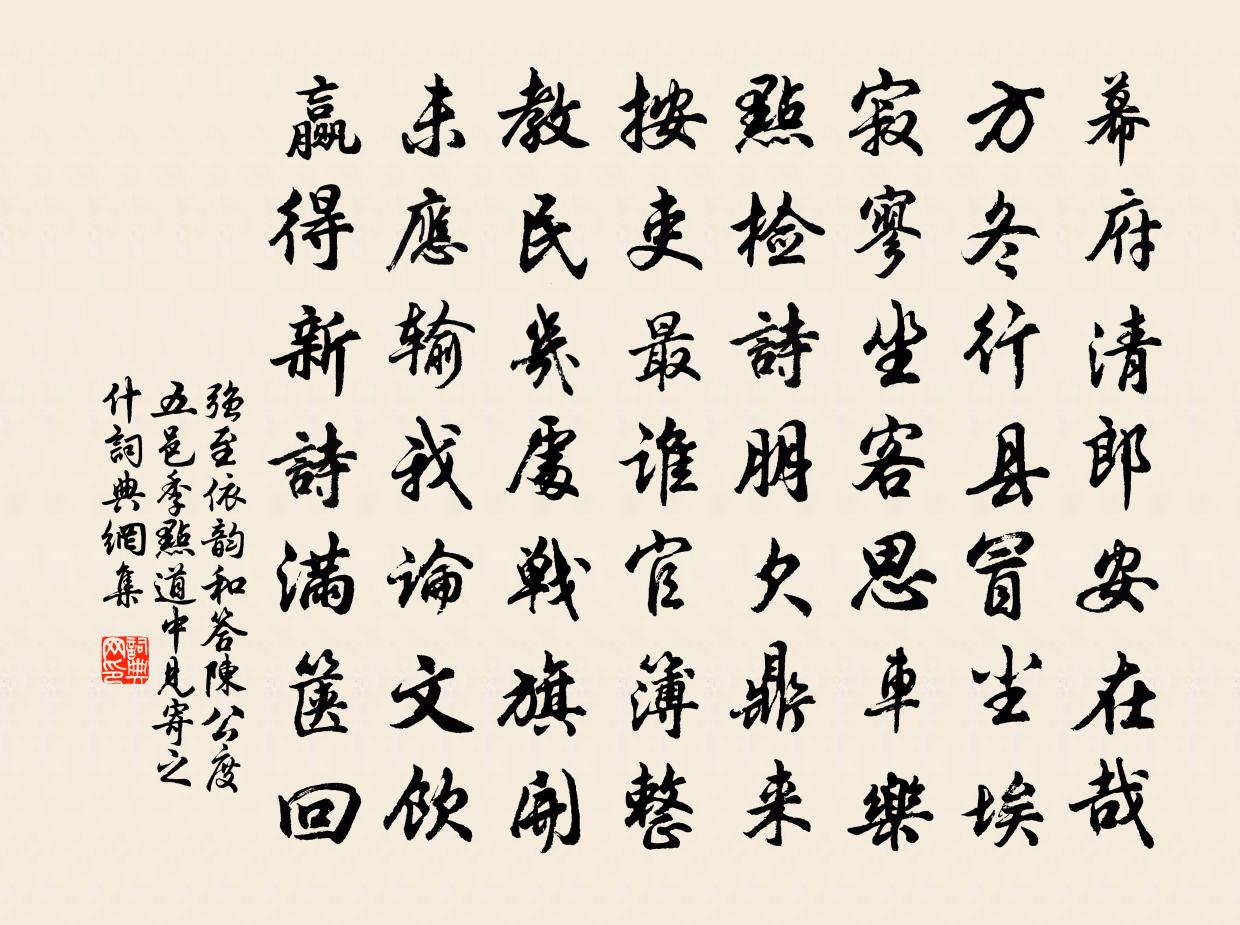 幕府清郎安在哉
方冬行县冒尘埃
寂寥坐客思車樂
點檢詩朋欠鼎来
按吏最誰官簿整
教民幾處戰旗開
未應输我論文飲
贏得新詩滿篋回
强至依韵和答陳公度
五邑季點道中見寄之
什詞典網集
詞典网印